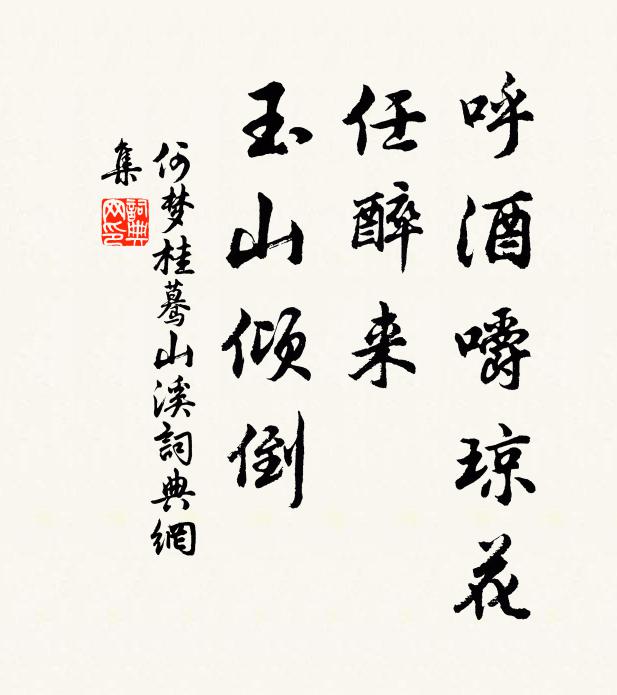 呼酒嚼琼花
任醉来
玉山倾倒
何梦桂蓦山溪詞典網
集
詞典
网印